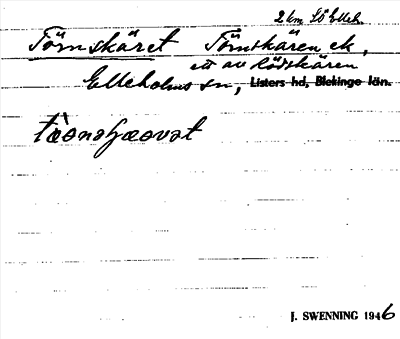 2 km SO Elleh.
Törnskäret Törnskären ek,
ett av Rödskären
Elleholms sn, Listers hd, Blekinge län.
J. SWENNING 1946